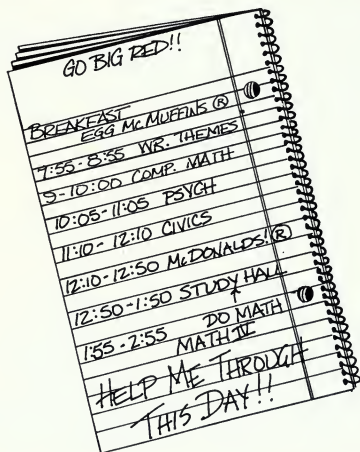 GO BIG RED!!
BREAKFAST
EGG McMUFFINS ®
7:55-8:55 WR. THEMES
9-10:00 COMP. MATH
10:05-11:05 PSYCH
11:10-12:10 CIVICS
12:10-12:50 McDONALDS! ®
12:50-1:50 STUDY HALL
↑
DO MATH
1:55-2:55 MATH IV
HELP ME THROUGH
THIS DAY!!